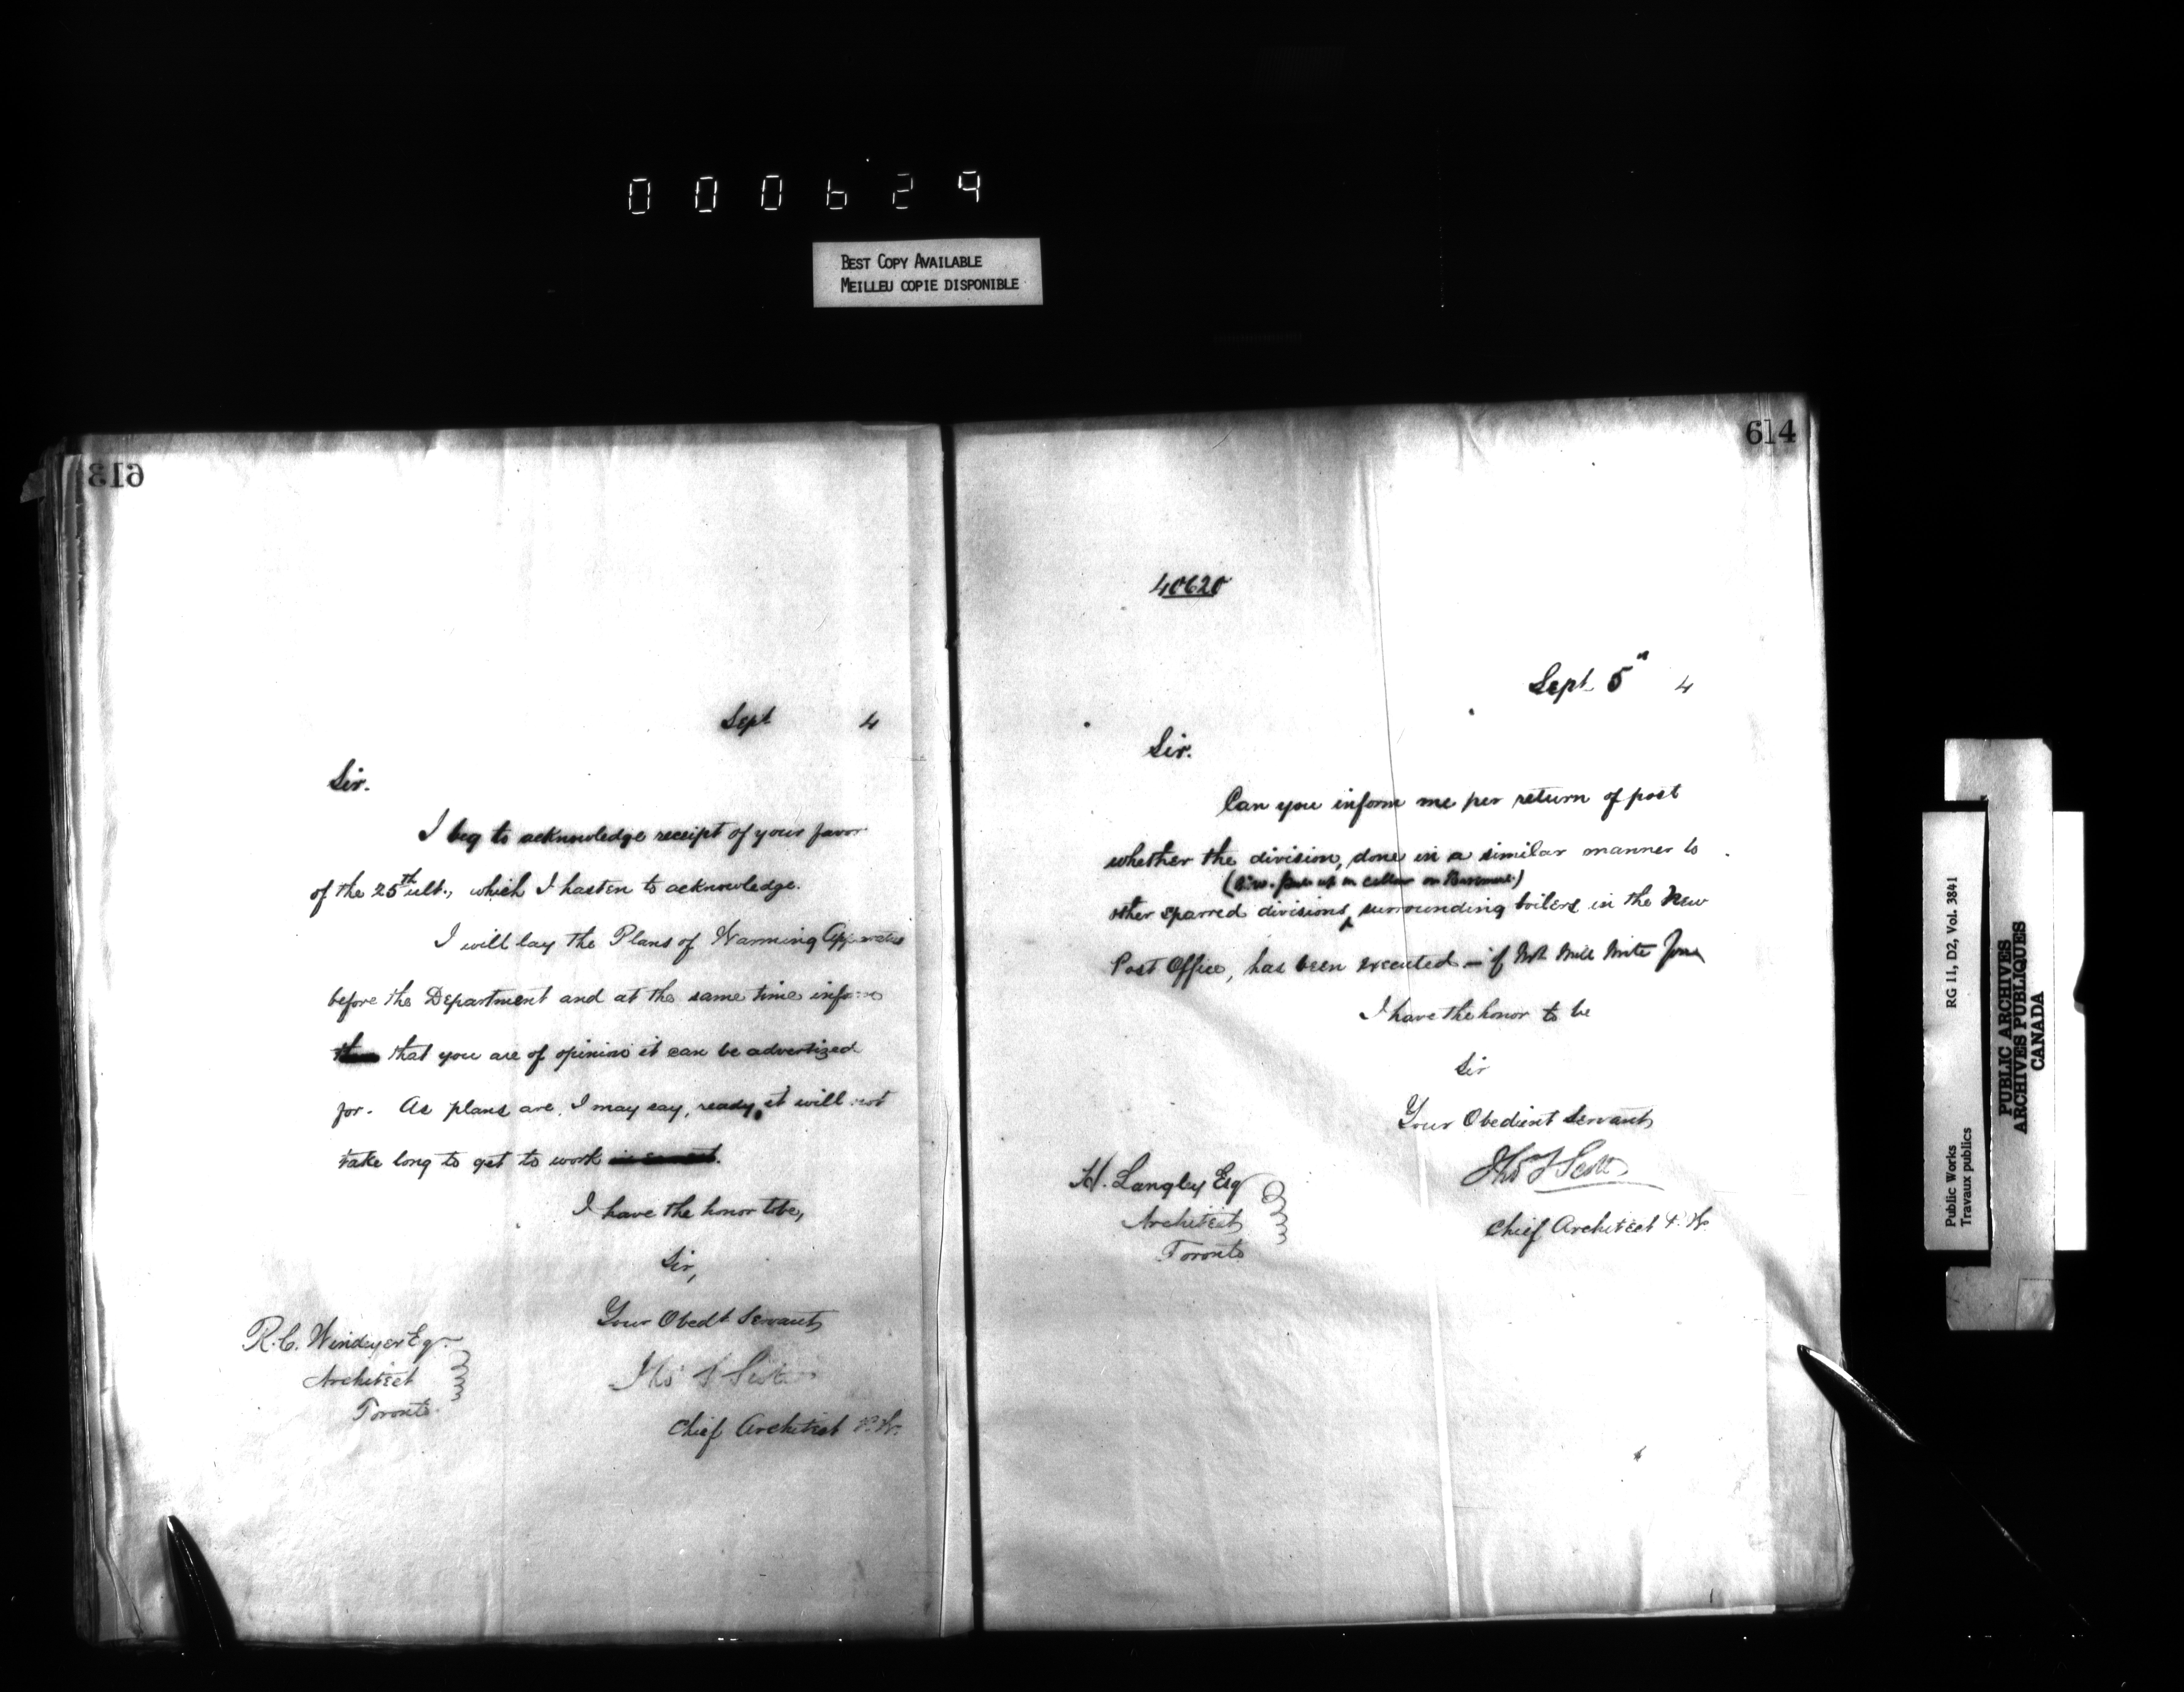 000629
BEST COPY AVAILABLE
MEILLEU COPIE DISPONIBLE
613
Sept 4
Sir.
I beg to acknowledge receipt of your favor
of the 25th ult., which I hasten to acknowledge.
I will lay the Plans of Warming Apparatus
before the Department and at the same time inform
that you are of opinion it can be advertized
for. As plans are, I may say, ready, it will not
take long to get to work
I have the honor to be,
Sir,
Your Obedt Servant
Thos S Scott
Chief Architect P.W.
R.C. Windeyer Esq.
Architect
Toronto.
614
40620
Sept 5th 4
Sir.
Can you inform me per return of post
whether the division, done in a similar manner to
in cellar or Basement)
other sparred divisions surrounding boilers in the New
Post Office, has been executed – if not
I have the honor to be
Sir
Your Obedient Servant
Thos S Scott
Chief Architect P.W.
H. Langley Esq
Architect
Toronto
Public Works RG 11, D2, Vol. 3841
Travaux publics
PUBLIC ARCHIVES
ARCHIVES PUBLIQUES
CANADA